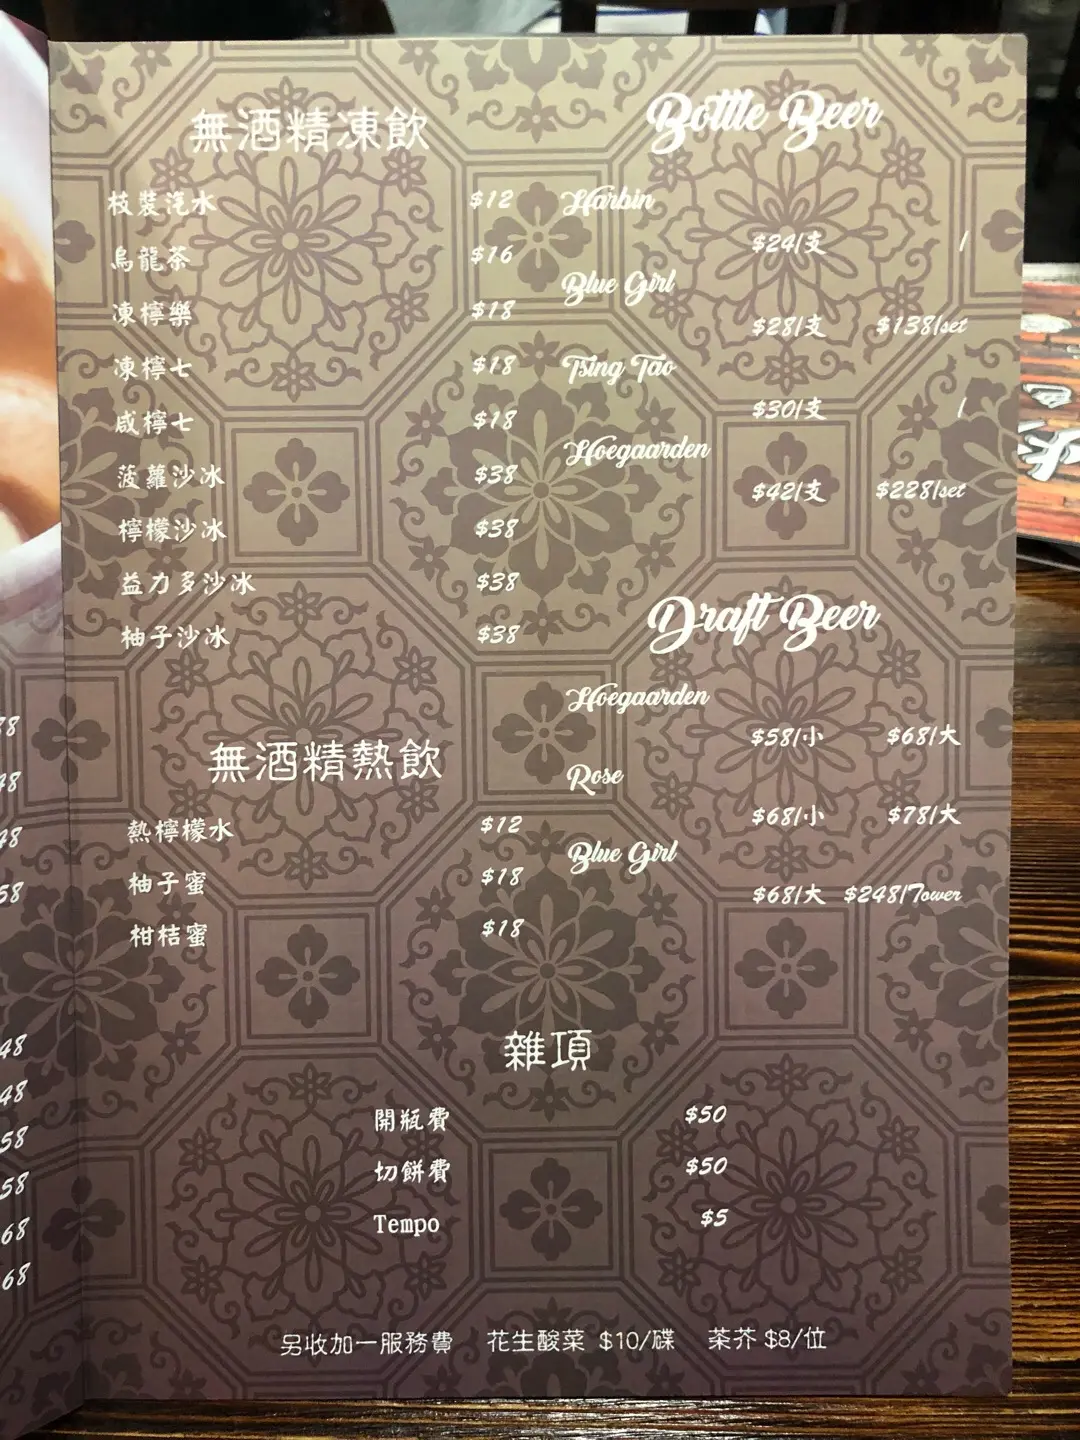 無酒精凍飲
枝裝汽水 $12
烏龍茶 $16
凍檸樂 $18
凍檸七 $18
咸檸七 $18
菠蘿沙冰 $38
檸檬沙冰 $38
益力多沙冰 $38
柚子沙冰 $38
無酒精熱飲
熱檸檬水 $12
柚子蜜 $18
柑桔蜜 $18
Bottle Beer
Harbin
$24/支 /
Blue Girl
$28/支 $138/set
Tsing Tao
$30/支 /
Hoegaarden
$42/支 $228/set
Draft Beer
Hoegaarden
$58/小 $68/大
Rose
$68/小 $78/大
Blue Girl
$68/大 $248/Tower
雜項
開瓶費 $50
切餅費 $50
Tempo $5
另收加一服務費 花生酸菜 $10/碟 茶芥 $8/位
48
48
58
48
48
58
58
68
68